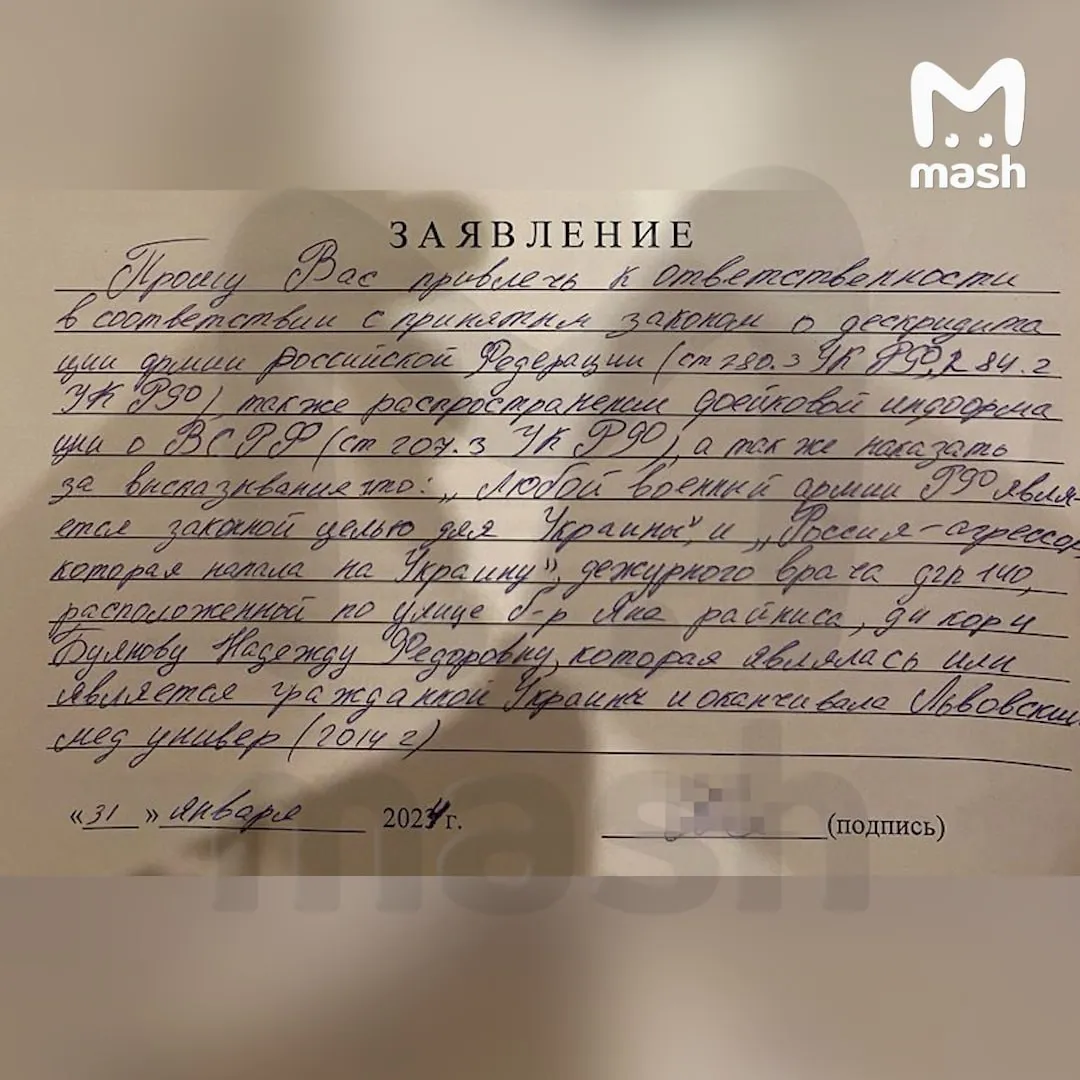 mash
ЗАЯВЛЕНИЕ
Прошу Вас привлечь к ответственности
в соответствии с принятым законом о дескридита
ции армии Российской Федерации (ст 280.3 УК РФ, 284.2
УК РФ), также распространении фейковой информа
ции о ВС РФ (ст 207.3 УК РФ), а так же наказать
за высказывание что: „Любой военный армии РФ явля-
ется законной целью для Украины", и „Россия-агрессор
которая напала на Украину", дежурного врача дгп 140,
расположенной по улице б-р Яна райниса,
Буянову Надежду Федоровну, которая являлась или
является гражданкой Украины и оканчивала Львовский
мед универ (2014 г)
«31» января 2024 г. (подпись)
mash